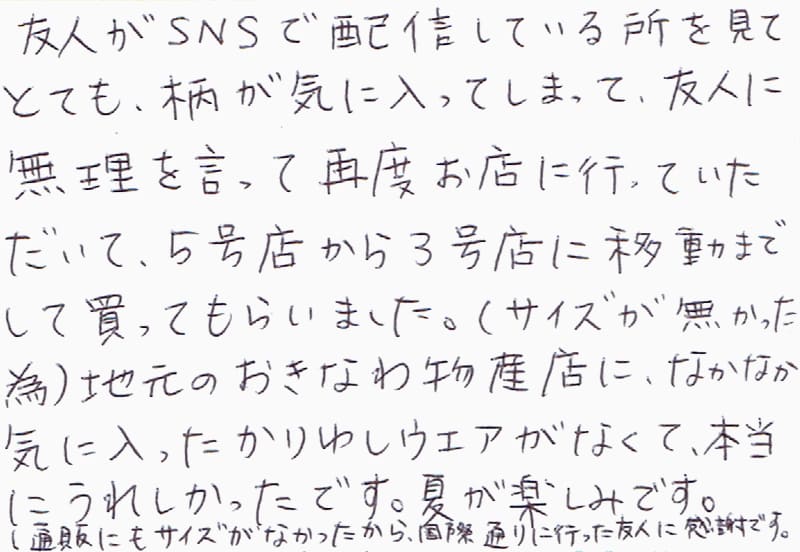 友人がSNSで配信している所を見て
とても、柄が気に入ってしまって、友人に
無理を言って再度お店に行っていた
だいて、5号店から3号店に移動まで
して買ってもらいました。(サイズが無かった
為)地元のおきなわ物産店に、なかなか
気に入ったかりゆしウエアがなくて、本当
にうれしかったです。夏が楽しみです。
(通販にもサイズがなかったから、国際通りに行った友人に感謝です。